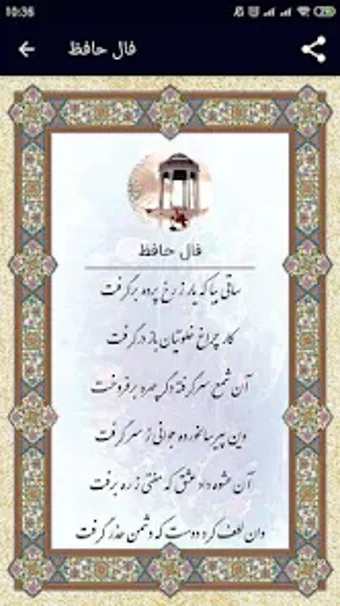 10:36
فال حافظ
فال حافظ
ساقی بیا که یار ز رخ پرده برگرفت
کار چراغ خلوتیان باز درگرفت
آن شمع سرگرفته دگر چهره برفروخت
وین پیر سالخورده جوانی ز سر گرفت
آن عشوه داد عشق که مفتی ز ره برفت
وان لطف کرد دوست که دشمن حذر گرفت